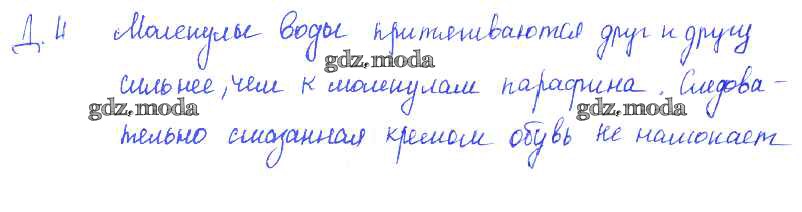 Д. 4 Молекулы воды притягиваются друг к другу
gdz.moda
сильнее, чем к молекулам парафина. Следова-
gdz.moda gdz.moda
тельно смазанная кремом обувь не намокает